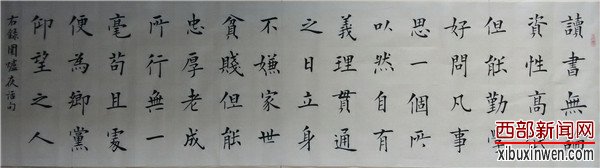 讀書無論
資性高低
但能勤學
好問凡事
思一個所
以然自有
義理貫通
之日立身
不嫌家世
貧賤但能
忠厚老成
所行無一
毫苟且處
便為鄉黨
仰望之人
右錄圍爐夜話句
西部新闻网
www.xibuxinwen.com